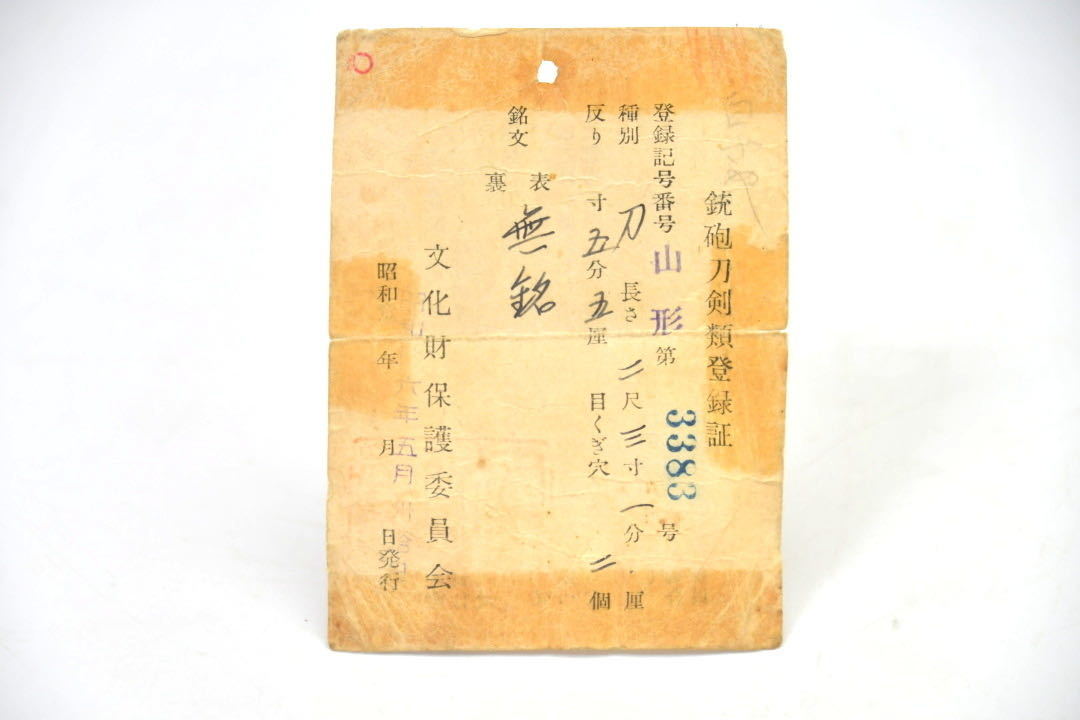 銃砲刀剣類登録証
登録記号番号 山形 第 3383 号
種別 刀 長さ 二尺三寸一分 厘
反り 寸五分五厘 目くぎ穴 二個
銘文 表 無銘
裏
文化財保護委員会
昭和 年 月 日発行
六年五月